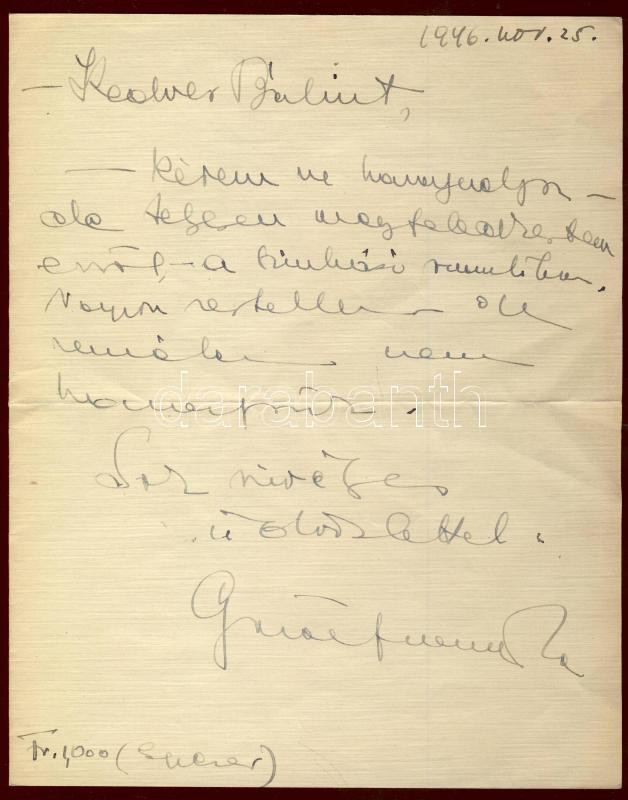 1946. nov. 25.
– Kedves Bálint,
– Kérem ne haragudjon –
de teljesen megfeledkeztem
erről, – a színházi
Nagyon restellem – de
remélem nem
darabanth
Sok szívélyes
üdvözlettel.
Fr. 1,000 (